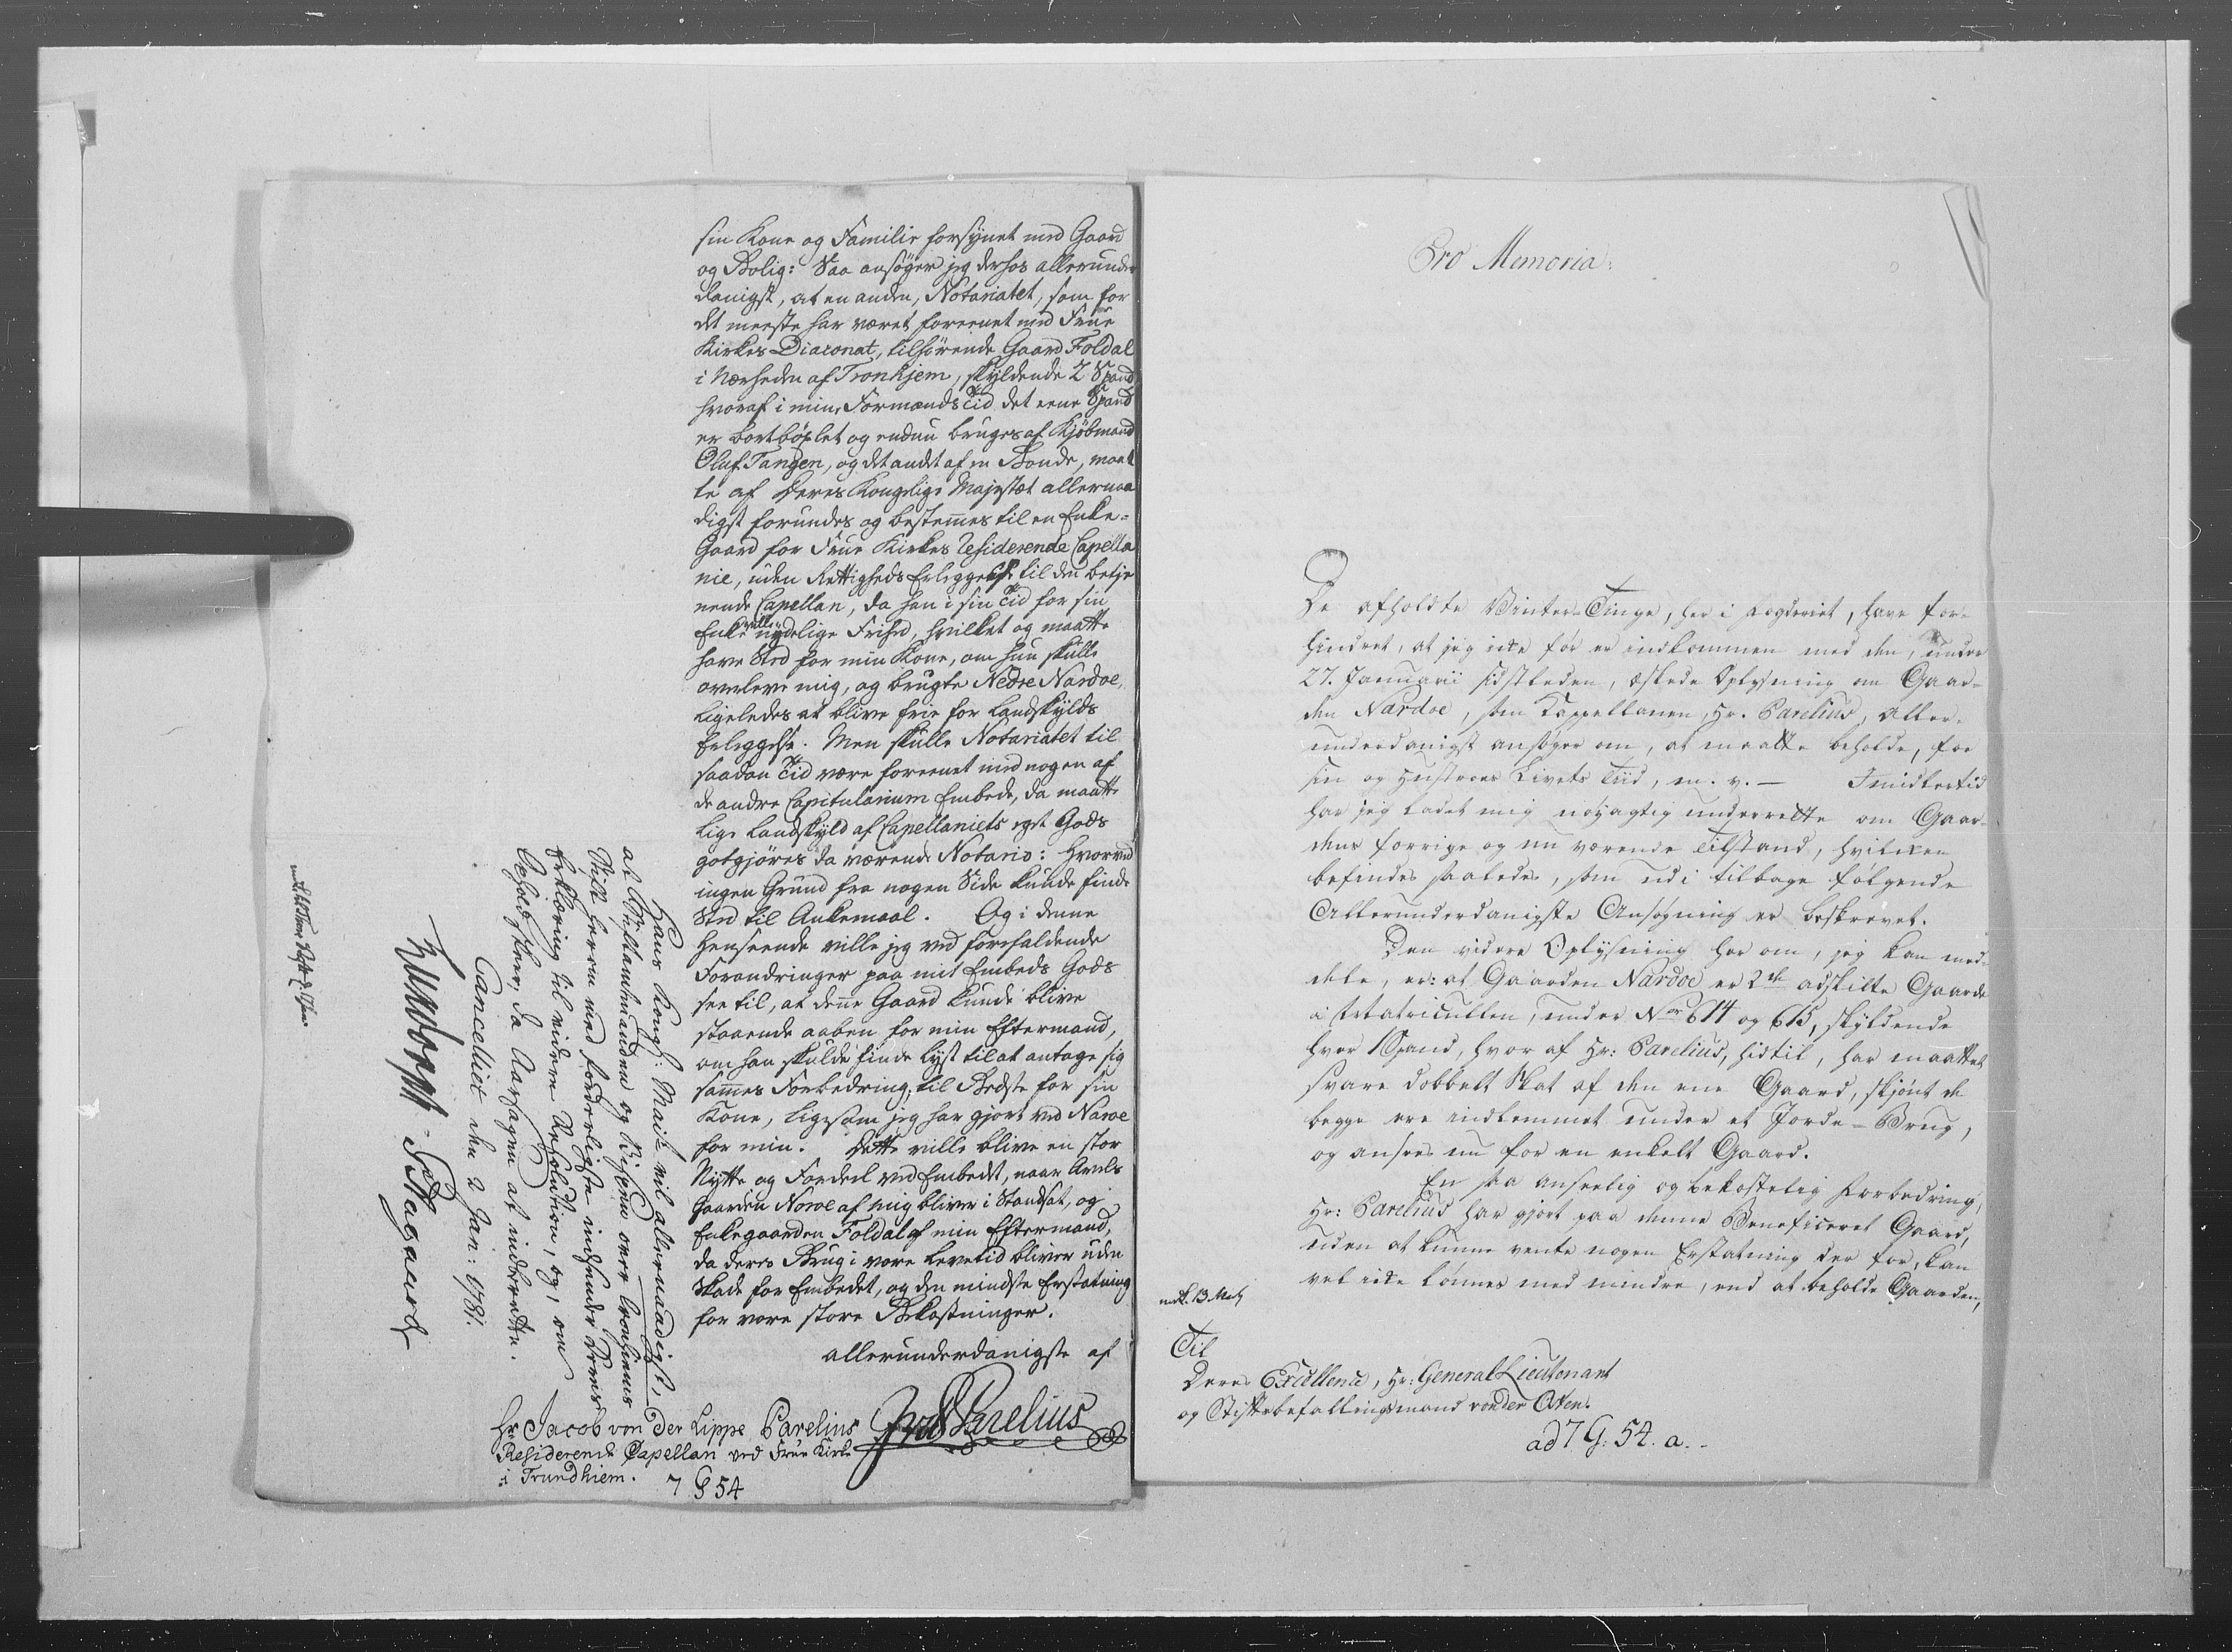 sin Kone og Familie forsynet med Gaard
og Bolig: Saa ansøger jeg derhos allerunder
danigst, at en anden, Notariatet, som for
det meeste har været foreenet med Frue
Kirkes Diaconat, tilhørende Gaard Foldal
i Nærheden af Tronhjem, skyldende 2 Spand
hvoraf i min Formands Tid det eene Spand
er bortbøxlet og endnu bruges af Kjøbmand
Oluf Tangen, og det andet af en Bonde, maat
te af Deres Kongelige Majestæt allernaa
digst forundes og bestemmes til en Enke-
Gaard for Frue Kirkes Residerende Capella
nie, uden Rettigheds Erleggelse til den betje
nende Capellan, da han i sin Tid for sin
Enke ville nyde lige Frihed, hvilket og maatte
have Sted for min Kone, om hun skulle
overleve mig, og brugte Nedre Nardoe,
ligeledes at blive frie for Landskylds
Erleggelse. Men skulle Notariatet til
saadan Tid være foreenet med nogen af
de andre Capitularium Embede, da maatte
lige Landskyld af Capellaniets eget Gods
gotgjøres da værende Notario: hvorved
ingen Grund fra nogen Side kunde finde
Sted til Ankemaal. Og i denne
Henseende ville jeg ved forefaldende
Forandringer paa mit Embeds Gods
see til, at denne Gaard kunde blive
staaende aaben for min Eftermand,
om han skulde finde Lyst til at antage sig
sammes Forbedring, til Bedste for sin
Kone, ligesom jeg har gjort ved Naroe
for min. Dette ville blive en stor
Nytte og Fordeel ved Embedet, naar Avels
Gaarden Naroe af mig bliver i Standsat, og
Enkegaarden Foldal af min Eftermand,
da deres Brug i vore Levetid bliver uden
Skade for Embedet, og den mindste Erstatning
for vore store Bekostninger.
allerunderdanigste af
JvdLParelius
Hans Kongl: Mait vil allernaadigst,
at Stiftamtmanden og Bispen over Tronhiems
Stift herom med forderligste indsender Deres
Erklæring til videre Resolution, og, om
behøves skeer, da Aarsagen at indberette.
Cancelliet den 2 Jan: 1781.
Hr Jacob von Der Lippe Parelius
Residerende Capellan ved Frue Kirke
i Trundhiem.
7 G 54
Pro Memoria.
De afholdte Vinter-Tinge, her i Fogderiet, have for-
hindret, at jeg icke før er indkommen med den, under
27. Januarii sidstleden, æskede Oplysning om Gaar-
den Nardoe, som Cappellanen, Hr. Parelius, Aller-
underdanigst ansøger om, at maatte beholde, for
sin og Hustrues Livets Tiid, m. v. — Imidlertid
har jeg ladet mig nøyagtig underrette om Gaar-
dens forrige og nu værende Tilstand, hvilcken
befindes saaledes, som udi tilbage følgende
Allerunderdanigste Ansøgning er beskrevet.
Den videre Oplysning her om, jeg kan med-
dele, er: at Gaarden Nardoe er 2de adskilte Gaarde
i Matriculen, under No 614 og 615, skyldende
hver 1 Spand, hvor af Hr: Parelius, hidtil, har maattet
svare dobbelt Skat af den ene Gaard, skjønt de
begge ere indlemmet under et Jorde-Brug,
og ansees nu for en enkelt Gaard.
En saa anseelig og bekostelig Forbedring,
Hr: Parelius har gjort paa denne Beneficeret Gaard,
uden at kunne vente nogen Erstatning der for, kan
vel icke lønnes med mindre, end at beholde Gaarden,
Til
Deres Excellence, Hr: General Lieutenant
og Stiftsbefalingsmand von der Osten.
ad 7 G: 54. a.